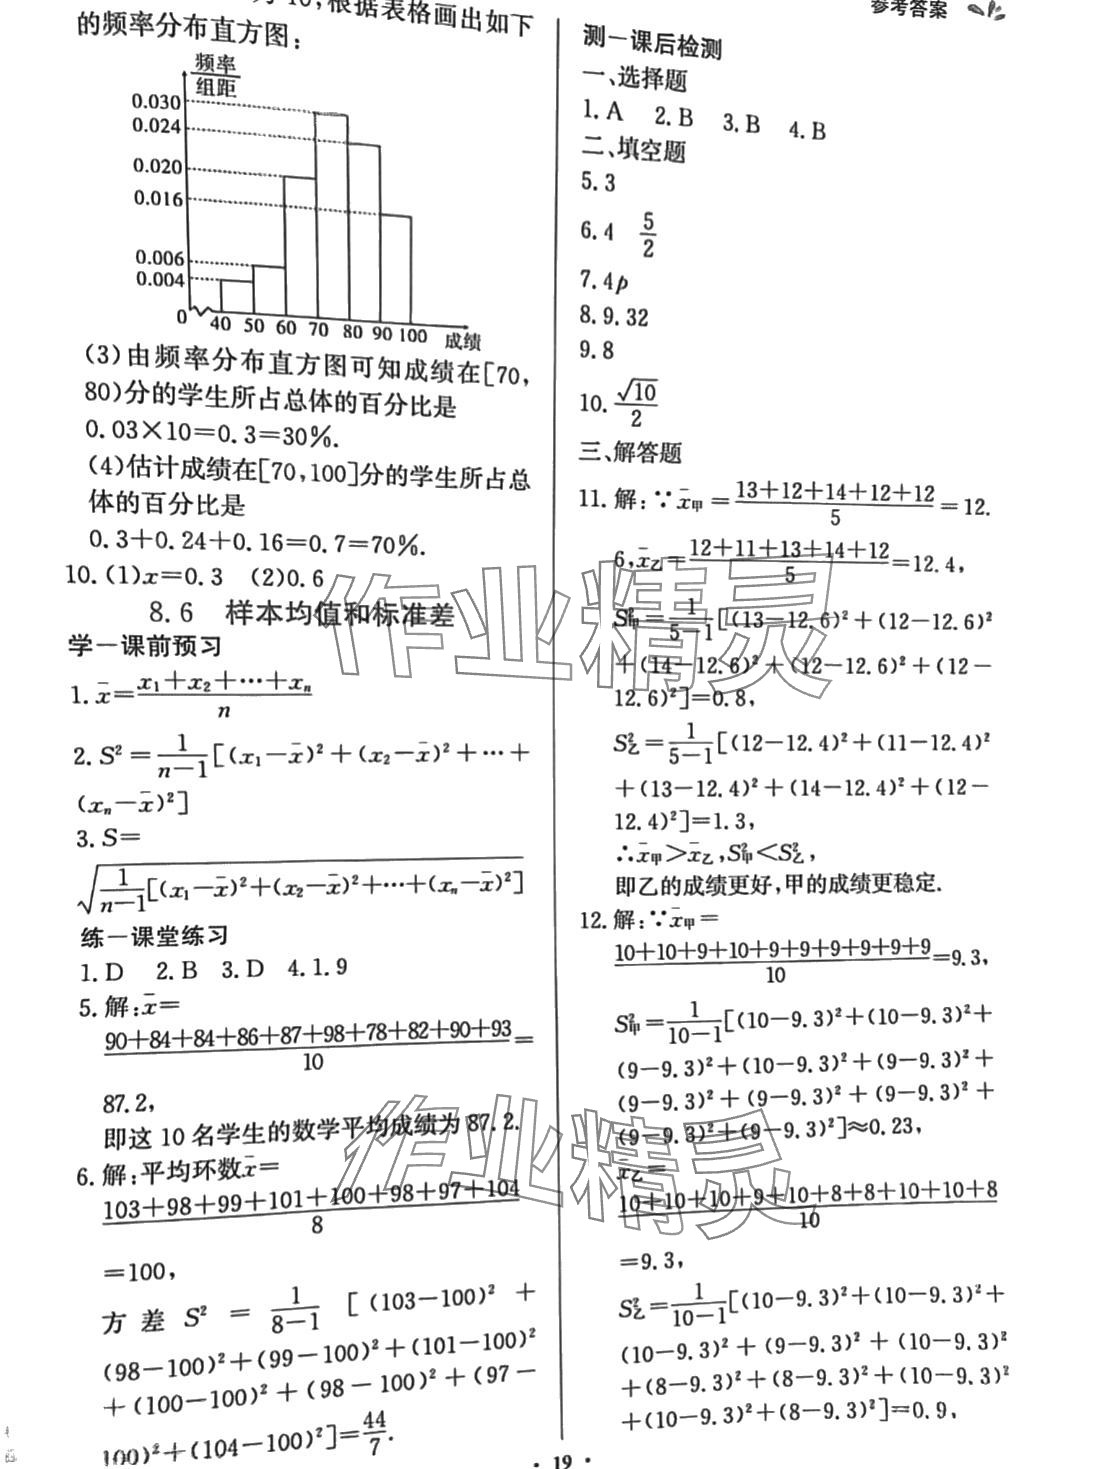 参考答案
为10,根据表格画出如下
的频率分布直方图:
频率
组距
0.030
0.024
0.020
0.016
0.006
0.004
0 40 50 60 70 80 90 100 成绩
(3)由频率分布直方图可知成绩在[70,
80)分的学生所占总体的百分比是
0.03×10=0.3=30%.
(4)估计成绩在[70,100]分的学生所占总
体的百分比是
0.3+0.24+0.16=0.7=70%.
10.(1)x=0.3 (2)0.6
8.6 样本均值和标准差
学一课前预习
1. x̄=(x₁+x₂+…+xₙ)/n
2. S²=1/(n-1)[(x₁-x̄)²+(x₂-x̄)²+…+
(xₙ-x̄)²]
3. S=
√(1/(n-1)[(x₁-x̄)²+(x₂-x̄)²+…+(xₙ-x̄)²])
练一课堂练习
1.D 2.B 3.D 4.1.9
5.解:x̄=
(90+84+84+86+87+98+78+82+90+93)/10=
87.2,
即这10名学生的数学平均成绩为87.2.
6.解:平均环数x̄=
(103+98+99+101+100+98+97+104)/8
=100,
方差S²=1/(8-1)[(103-100)²+
(98-100)²+(99-100)²+(101-100)²
+(100-100)²+(98-100)²+(97-
100)²+(104-100)²]=44/7.
测一课后检测
一、选择题
1.A 2.B 3.B 4.B
二、填空题
5.3
6.4 5/2
7.4p
8.9.32
9.8
10.√10/2
三、解答题
11.解:∵x̄甲=(13+12+14+12+12)/5=12.
6,x̄乙=(12+11+13+14+12)/5=12.4,
S²甲=1/(5-1)[(13-12.6)²+(12-12.6)²
+(14-12.6)²+(12-12.6)²+(12-
12.6)²]=0.8,
S²乙=1/(5-1)[(12-12.4)²+(11-12.4)²
+(13-12.4)²+(14-12.4)²+(12-
12.4)²]=1.3,
∴x̄甲>x̄乙,S²甲<S²乙,
即乙的成绩更好,甲的成绩更稳定.
12.解:∵x̄甲=
(10+10+9+10+9+9+9+9+9+9)/10=9.3,
S²甲=1/(10-1)[(10-9.3)²+(10-9.3)²+
(9-9.3)²+(10-9.3)²+(9-9.3)²+
(9-9.3)²+(9-9.3)²+(9-9.3)²+
(9-9.3)²+(9-9.3)²]≈0.23,
x̄乙=
(10+10+10+9+10+8+8+10+10+8)/10
=9.3,
S²乙=1/(10-1)[(10-9.3)²+(10-9.3)²+
(10-9.3)²+(9-9.3)²+(10-9.3)²
+(8-9.3)²+(8-9.3)²+(10-9.3)²
+(10-9.3)²+(8-9.3)²]=0.9,
·19·
作业精灵
作业精灵